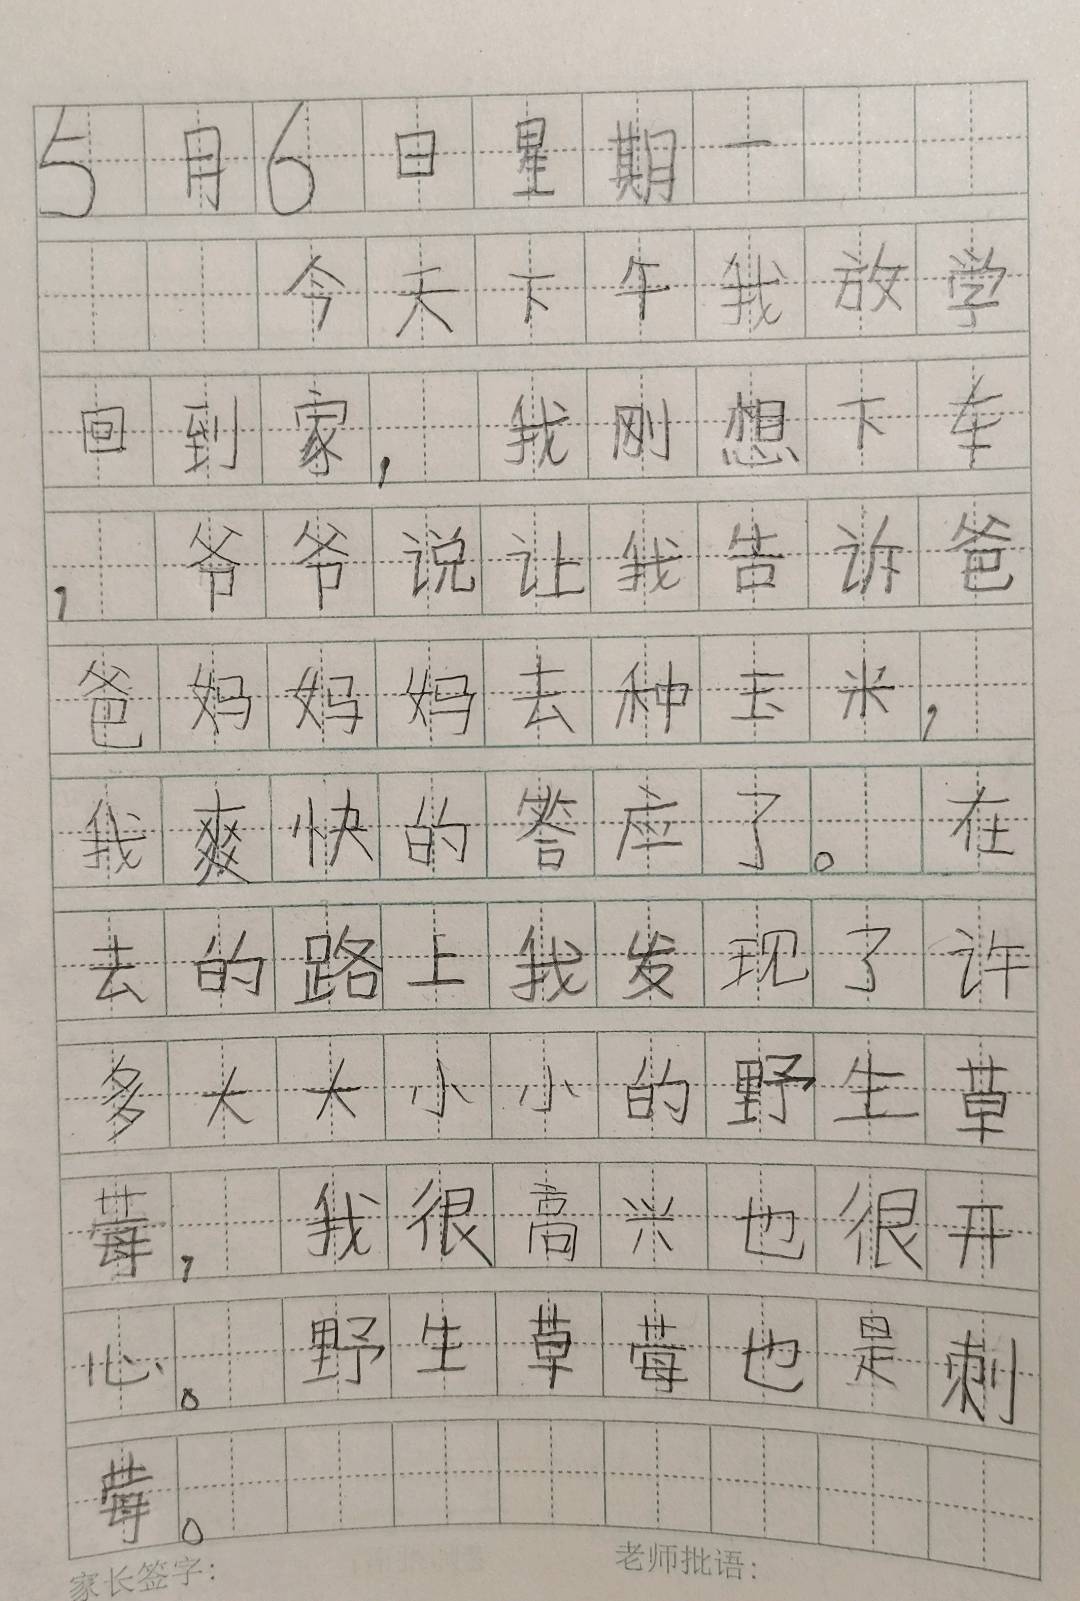 5月6日星期一
今天下午我放学
回到家,我刚想下车
,爷爷说让我告诉爸
爸妈妈妈去种玉米,
我爽快的答座了。在
去的路上我发现了许
多大大小小的野生草
莓,我很高兴也很开
心。野生草莓也是刺
莓。
家长签字: 老师批语: